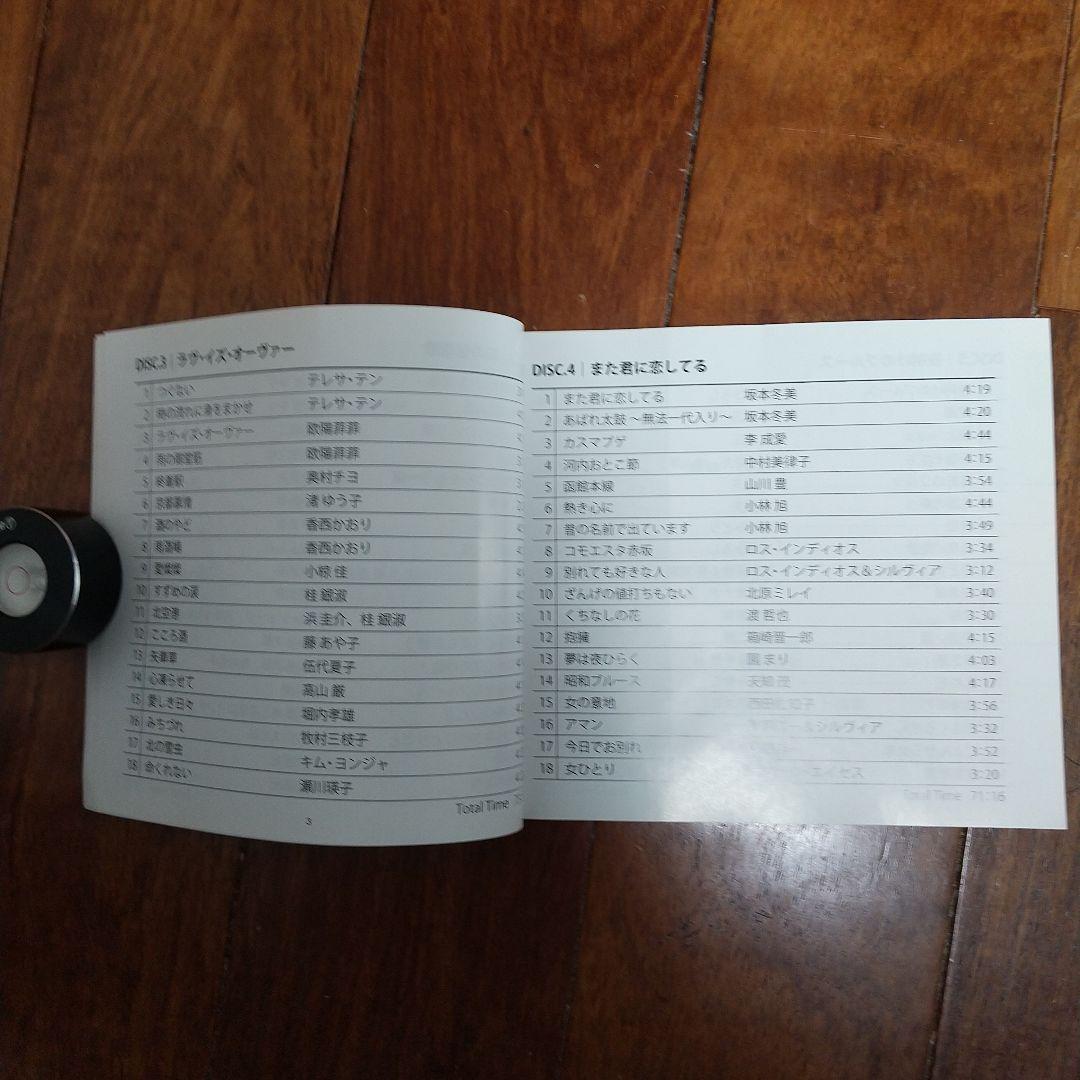 DISC.3｜ラヴ・イズ・オーヴァー
1 つぐない テレサ・テン
2 時の流れに身をまかせ テレサ・テン
3 ラヴ・イズ・オーヴァー 欧陽菲菲
4 雨の御堂筋 欧陽菲菲
5 終着駅 奥村チヨ
6 京都慕情 渚 ゆう子
7 酒のやど 香西かおり
8 雨酒場 香西かおり
9 愛燦燦 小椋 佳
10 すずめの涙 桂 銀淑
11 北空港 浜 圭介、桂 銀淑
12 こころ酒 藤 あや子
13 矢車草 伍代夏子
14 心凍らせて 高山 厳
15 愛しき日々 堀内孝雄
16 みちづれ 牧村三枝子
17 北の雪虫 キム・ヨンジャ
18 命くれない 瀬川瑛子
Total Time
3
DISC.4｜また君に恋してる
1 また君に恋してる 坂本冬美 4:19
2 あばれ太鼓 〜無法一代入り〜 坂本冬美 4:20
3 カスマプゲ 李 成愛 4:44
4 河内おとこ節 中村美律子 4:15
5 函館本線 山川 豊 3:54
6 熱き心に 小林 旭 4:44
7 昔の名前で出ています 小林 旭 3:49
8 コモエスタ赤坂 ロス・インディオス 3:34
9 別れても好きな人 ロス・インディオス＆シルヴィア 3:12
10 ざんげの値打ちもない 北原ミレイ 3:40
11 くちなしの花 渡 哲也 3:30
12 抱擁 箱崎晋一郎 4:15
13 夢は夜ひらく 園 まり 4:03
14 昭和ブルース 天知 茂 4:17
15 女の意地 西田佐知子 3:56
16 アマン ＆シルヴィア 3:32
17 今日でお別れ 3:52
18 女ひとり ・エイセス 3:20
Total Time 71:16